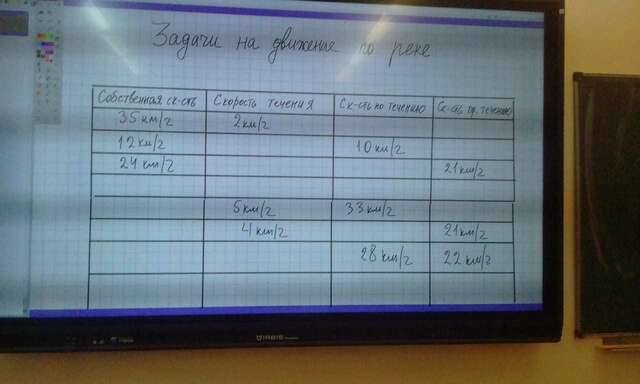 Задачи на движение по реке
Собственная ск-сть Скорость течения Ск-сть по течению Ск-сть пр. течению
35 км/ч 2 км/ч
12 км/ч 10 км/ч
24 км/ч 21 км/ч
5 км/ч 33 км/ч
4 км/ч 21 км/ч
28 км/ч 22 км/ч
IRBIS